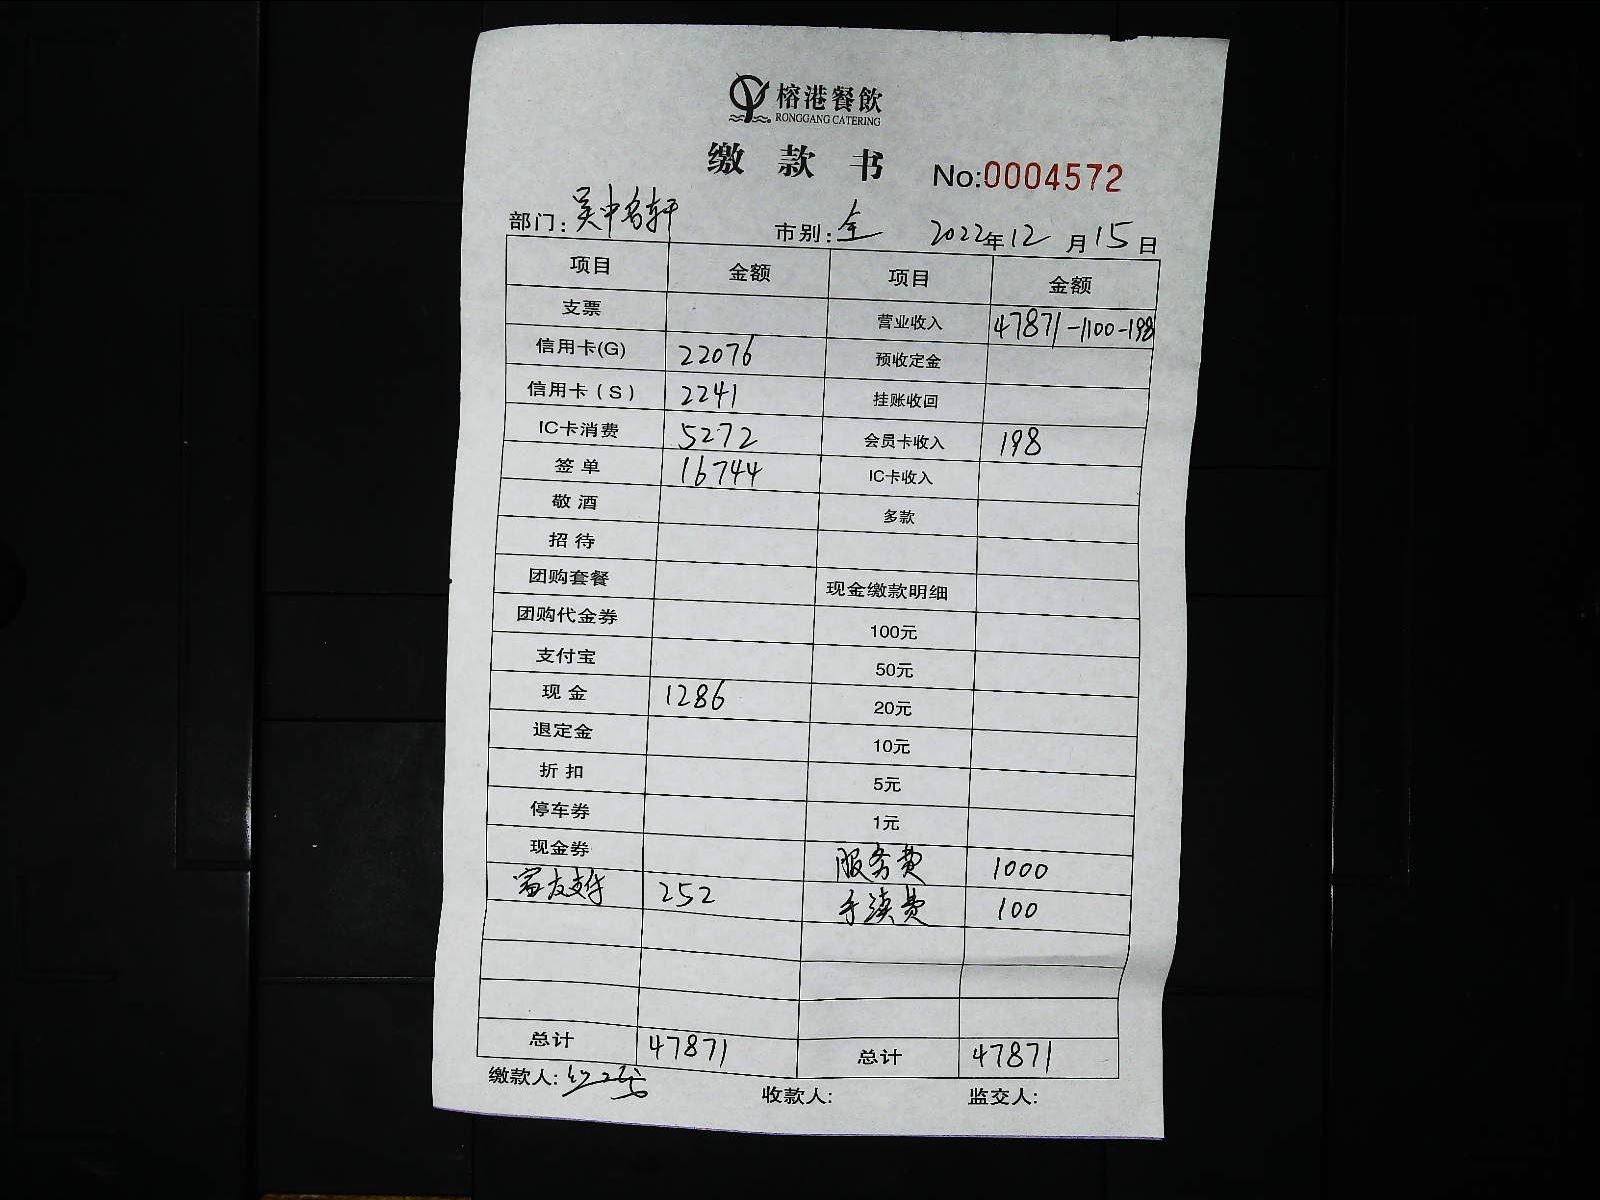 榕港餐飲
RONGGANG CATERING
缴 款 书 No:0004572
部门: 吴中名轩 市别: 全 2022年12月15日
项目 金额 项目 金额
支票 营业收入 47871-1100-198
信用卡(G) 22076 预收定金
信用卡(S) 2241 挂账收回
IC卡消费 5272 会员卡收入 198
签单 16744 IC卡收入
敬酒 多款
招待
团购套餐 现金缴款明细
团购代金券 100元
支付宝 50元
现金 1286 20元
退定金 10元
折扣 5元
停车券 1元
现金券 服务费 1000
富友支付 252 手续费 100
总计 47871 总计 47871
缴款人: 收款人: 监交人: